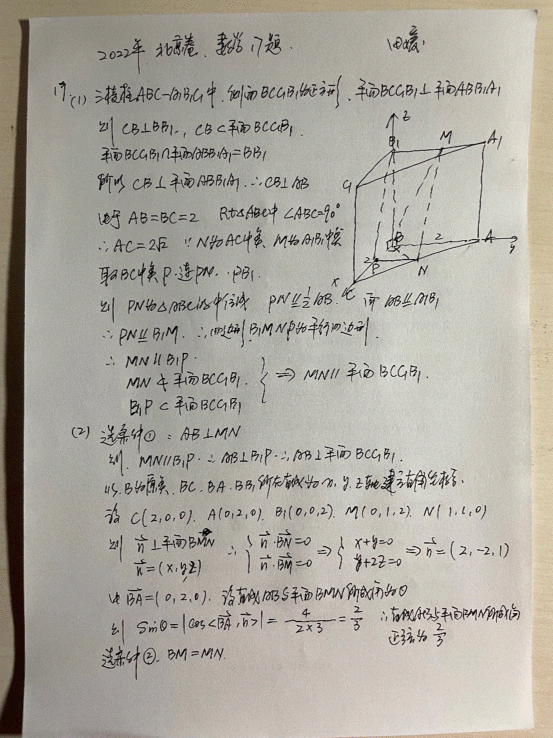 2022年 北京卷 数学 17题. 田媛
17. (1) 三棱柱ABC-A₁B₁C₁中, 侧面BCC₁B₁为正方形, 平面BCC₁B₁⊥平面ABB₁A₁
则 CB⊥BB₁, CB⊂平面BCC₁B₁.
平面BCC₁B₁∩平面ABB₁A₁=BB₁
所以 CB⊥平面ABB₁A₁. ∴CB⊥AB
由于 AB=BC=2 Rt△ABC中 ∠ABC=90°
∴AC=2√2 ∵N为AC中点 M为A₁B₁中点
取BC中点P. 连PN. PB₁.
则 PN为△ABC的中位线 PN∥½AB. 而 AB∥A₁B₁
∴PN∥B₁M. ∴四边形B₁MNP为平行四边形.
∴ MN∥B₁P.
MN⊄平面BCC₁B₁ ⇒ MN∥平面BCC₁B₁.
B₁P⊂平面BCC₁B₁
z
B₁ M A₁
C₁
B 2 A y
2 P N
x C
(2) 选条件①: AB⊥MN
则. MN∥B₁P ∴AB⊥B₁P ∴AB⊥平面BCC₁B₁.
以B为原点, BC. BA. BB₁所在直线为x, y, z轴建立直角坐标系.
设 C(2,0,0). A(0,2,0). B₁(0,0,2). M(0,1,2). N(1,1,0)
则 n⊥平面BMN ∴ { n·BN=0 ⇒ { x+y=0 ⇒ n=(2,-2,1)
n=(x,y,z) n·BM=0 y+2z=0
由BA=(0,2,0). 设直线AB与平面BMN所成角为θ
则 Sinθ=|cos<BA,n>|= 4/2×3 = 2/3 ∴直线AB与平面BMN所成角
正弦为 2/3
选条件②. BM=MN.